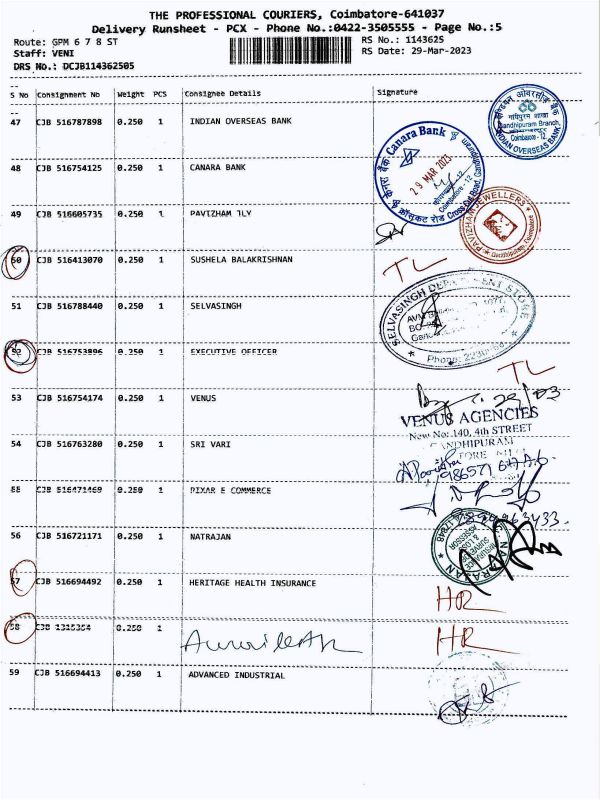 THE PROFESSIONAL COURIERS, Coimbatore-641037
Delivery Runsheet - PCX - Phone No.:0422-3505555 - Page No.:5
Route: GPM 6 7 8 ST
RS No.: 1143625
Staff: VENI
RS Date: 29-Mar-2023
DRS No.: DCJB114362505
S No Consignment No Weight PCS Consignee Details Signature
47 CJB 516787898 0.250 1 INDIAN OVERSEAS BANK
इण्डियन ओवरसीज़ बैंक
Gandhipuram Branch
Coimbatore - 12
INDIAN OVERSEAS BANK
48 CJB 516754125 0.250 1 CANARA BANK
केनरा बैंक Canara Bank
29 MAR 2023
Coimbatore - 12
क्रॉसकट रोड Cross Cut Road
49 CJB 516605735 0.250 1 PAVIZHAM JLY
PAVIZHAM JEWELLERS
Gandhipuram, Coimbatore
50 CJB 516413070 0.250 1 SUSHELA BALAKRISHNAN
TL
51 CJB 516788440 0.250 1 SELVASINGH
SELVASINGH DEPARTMENT STORE
Phone:
52 CJB 516753896 0.250 1 EXECUTIVE OFFICER
TL
53 CJB 516754174 0.250 1 VENUS
VENUS AGENCIES
New No: 140, 4th STREET
GANDHIPURAM
54 CJB 516763280 0.250 1 SRI VARI
55 CJB 516471469 0.250 1 PIXAR E COMMERCE
56 CJB 516721171 0.250 1 NATRAJAN
57 CJB 516694492 0.250 1 HERITAGE HEALTH INSURANCE
HR
58 CJB 1315354 0.250 1
HR
59 CJB 516694413 0.250 1 ADVANCED INDUSTRIAL